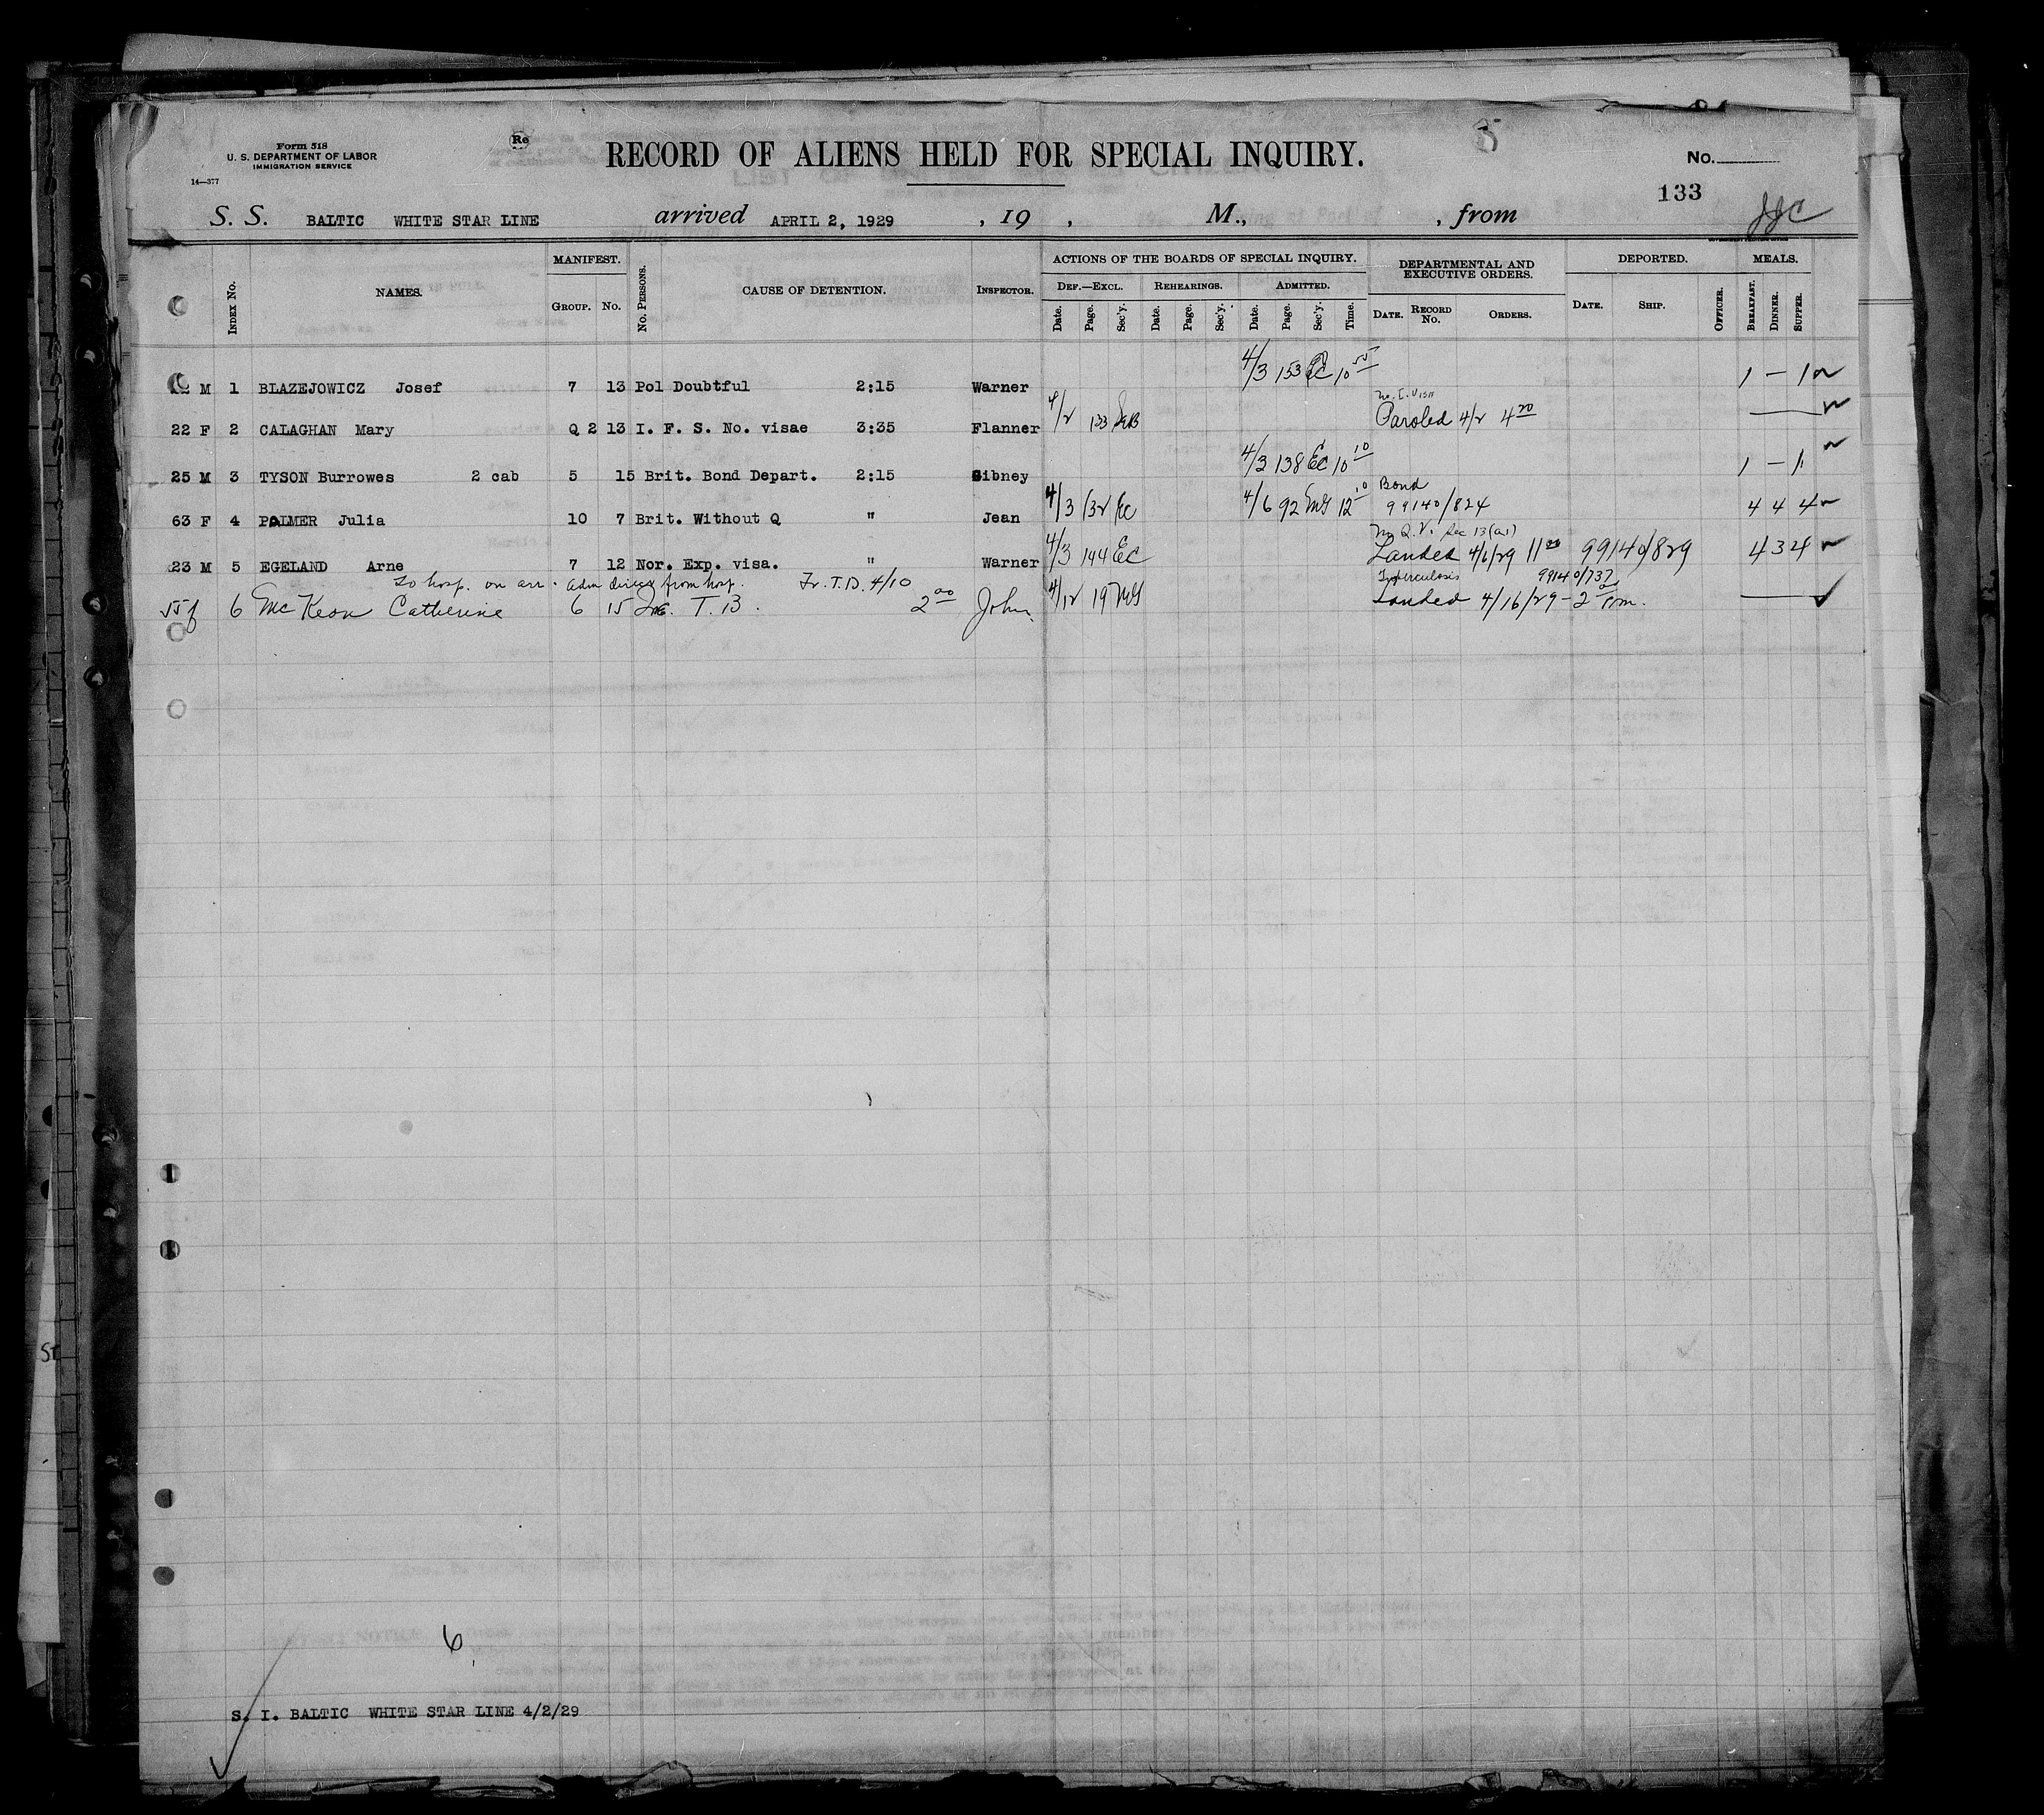 Form 518
U. S. DEPARTMENT OF LABOR
IMMIGRATION SERVICE
14—377
Re
RECORD OF ALIENS HELD FOR SPECIAL INQUIRY.
No.
133
S. S. BALTIC WHITE STAR LINE arrived APRIL 2, 1929 , 19 , M., , from
JJC
INDEX NO. NAMES. MANIFEST. GROUP. NO. NO. PERSONS. CAUSE OF DETENTION. INSPECTOR. ACTIONS OF THE BOARDS OF SPECIAL INQUIRY. DEPARTMENTAL AND EXECUTIVE ORDERS. DEPORTED. MEALS.
DEF.—EXCL. REHEARINGS. ADMITTED.
Date. Page. Sec'y. Date. Page. Sec'y. Date. Page. Sec'y. Time. DATE. RECORD NO. ORDERS. DATE. SHIP. OFFICER. BREAKFAST. DINNER. SUPPER.
M 1 BLAZEJOWICZ Josef 7 13 Pol Doubtful 2:15 Warner 4/3 153 EC 10 55 1 — 1
22 F 2 CALAGHAN Mary Q 2 13 I. F. S. No. visae 3:35 Flanner 4/2 133 No. I. Visa Paroled 4/2 4 20
25 M 3 TYSON Burrowes 2 cab 5 15 Brit. Bond Depart. 2:15 Sibney 4/3 138 EC 10 10 1 — 1
63 F 4 PALMER Julia 10 7 Brit. Without Q " Jean 4/3 132 EC 4/6 92 MS 12 10 Bond 99140/824 4 4 4
23 M 5 EGELAND Arne 7 12 Nor. Exp. visa. " Warner 4/3 194 EC No Q. V. Sec 13(a1) Landed 4/6/29 11 00 99140/829 4 3 4
To hosp. on arr. Adm direct from hosp. Fr. T.D. 4/10 Tuberculosis 99140/737
55 f 6 McKeon Catherine 6 15 T. B. 2 00 John. 4/12 19 MS Landed 4/16/29 - 2 00 Pm.
6
S. I. BALTIC WHITE STAR LINE 4/2/29